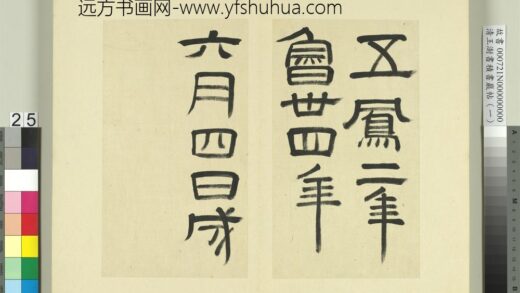 远方书画网-www.yfshuhua.com
五鳳二年
魯卅四年
六月四日成
故書000721N000000000
清王澍書積書巖帖(一)
25